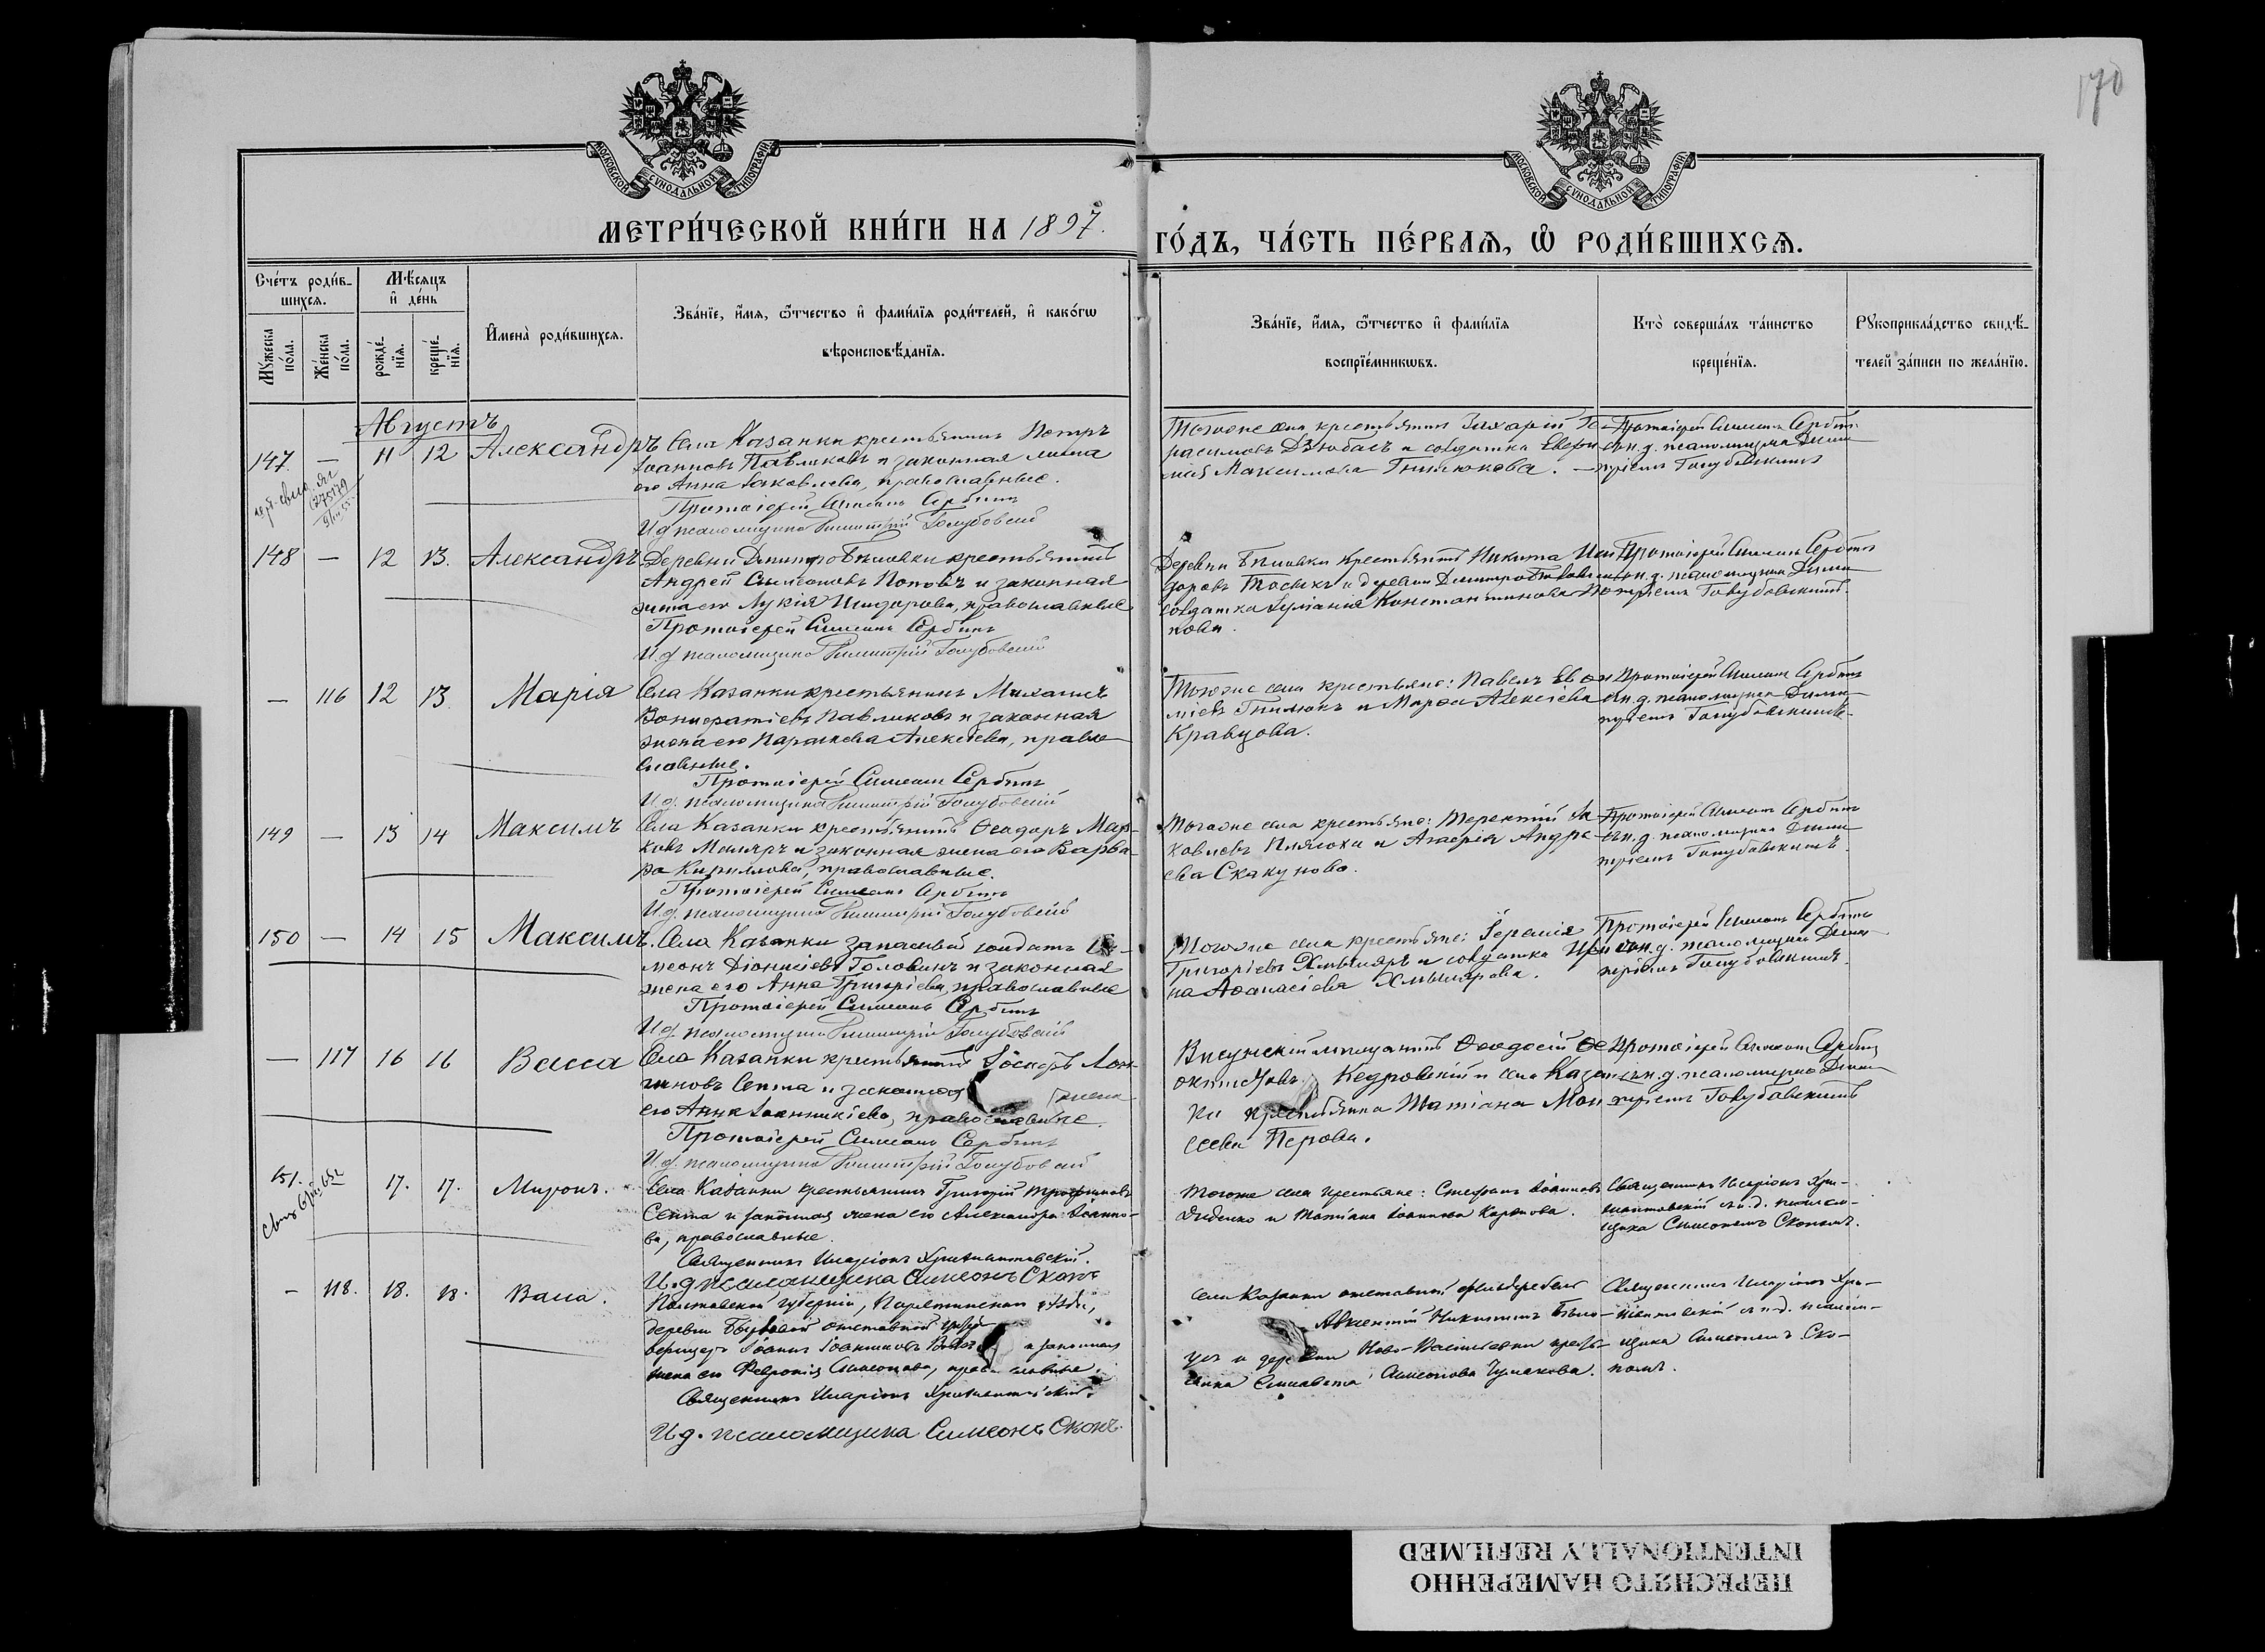 170
МОСКОВСКОЙ СУНОДАЛЬНОЙ ТИПОГРАФІИ
МОСКОВСКОЙ СУНОДАЛЬНОЙ ТИПОГРАФІИ
МЕТРИ́ЧЕСКОЙ КНИ́ГИ НА 1897.
ГО́ДЪ, ЧА́СТЬ ПЕ́РВАЯ, Ѡ҆ РОДИ́ВШИХСЯ.
Сче́тъ роди́в-
шихся.
Мѣ́сяцъ
и҆ де́нь
Му́жеска по́ла.
Же́нска по́ла.
рожде́-
нїя.
креще́-
нїя.
И҆мена̀ роди́вшихся.
Зва́нїе, и҆́мя, ѻ҆́тчество и҆ фами́лїя роди́телей, и҆ како́гѡ
вѣроисповѣ́данїя.
Зва́нїе, и҆́мя, ѻ҆́тчество и҆ фами́лїя
воспрїе́мникѡвъ.
Кто̀ соверша́лъ та́инство
креще́нїя.
Рꙋкоприкла́дство свидѣ́-
телей за́писи по жела́нїю.
Августъ
147. — 11 12 Александръ
Села Казанки крестьянинъ Петръ
Іоанновъ Павликовъ и законная жена
его Анна Іаковлева, православные.
Протоіерей Симеонъ Сербинъ
И.д. псаломщика Димитрій Голубовскій
Тогоже села крестьянинъ Захарій Ге-
расимовъ Дзюбасъ и солдатка Евфи-
мія Максимова Гнилюкова.
Протоіерей Симеонъ Сербинъ
съ и. д. псаломщика Дими-
тріемъ Голубовскимъ
148 — 12 13. Александръ
Деревни Дмитробѣловки крестьянинъ
Андрей Симеоновъ Поповъ и законная
жена его Лукія Исидорова, православные
Протоіерей Симеонъ Сербинъ
И.д. псаломщика Димитрій Голубовскій
Деревни Бѣловки крестьянинъ Никита Иси-
доровъ и деревни Дмитробѣловки
солдатка Іуліанія Константинова По-
пова.
Протоіерей Симеонъ Сербинъ
съ и. д. псаломщика Дими-
тріемъ Голубовскимъ.
— 116 12 13. Марія
Села Казанки крестьянинъ Михаилъ
Вонифатіевъ Павликовъ и законная
жена его Параскева Алексіева, право-
славные.
Протоіерей Симеонъ Сербинъ
И.д. псаломщика Димитрій Голубовскій
Тогоже села крестьяне: Павелъ Евѳи-
міевъ Гнилюкъ и Марѳа Алексіева
Кравцова.
Протоіерей Симеонъ Сербинъ
съ и. д. псаломщика Дими-
тріемъ Голубовскимъ
149 — 13 14 Максимъ
Села Казанки крестьянинъ Ѳеодоръ Мар-
ковъ Маляръ и законная жена его Варва-
ра Кириллова, православные.
Протоіерей Симеонъ Сербинъ
И.д. псаломщика Димитрій Голубовскій
Тогоже села крестьяне: Терентій Іа-
ковлевъ и Агаѳія Андре-
ева Скакунова.
Протоіерей Симеонъ Сербинъ
съ и. д. псаломщика Дими-
тріемъ Голубовскимъ
150 — 14 15 Максимъ.
Села Казанки запасный солдатъ Си-
меонъ Діонисіевъ Головинъ и законная
жена его Анна Григоріева, православные
Протоіерей Симеонъ Сербинъ
И.д. псаломщика Димитрій Голубовскій
Тогоже села крестьяне: Іеремія
Григоріевъ и солдатка Ири-
на Аѳанасіева
Протоіерей Симеонъ Сербинъ
съ и. д. псаломщика Дими-
тріемъ Голубовскимъ.
— 117 16 16 Васса
Села Казанки крестьянинъ Іосифъ Лон-
гиновъ Септа и законная жена
его Анна Іоанникіева, православные.
Протоіерей Симеонъ Сербинъ
И.д. псаломщика Димитрій Голубовскій
Висунскій мѣщанинъ Ѳеодосій Ѳе-
октистовъ Кедровскій и села Казан-
ки крестьянка Татіана Мои-
сеева Перова.
Протоіерей Симеонъ Сербинъ
съ и. д. псаломщика Дими-
тріемъ Голубовскимъ
151. 17. 17. Миронъ.
Села Казанки крестьянинъ Григорій Трофимовъ
Септа и законная жена его Александра Іоанно-
ва, православные.
Священникъ Иларіонъ
И.д. псаломщика Симеонъ Скопъ
Тогоже села крестьяне: Стефанъ Іоанновъ
Диденко и Татіана Іоаннова Карпова.
Священникъ Иларіонъ
съ и. д. псалом-
щика Симеономъ Скопомъ.
— 118. 18. 18. Васса.
Полтавской губерніи,
деревни отставной
Іоаннъ Іоанниковъ и законная
жена его Февронія Симеонова, православные.
Священникъ Иларіонъ
И.д. псаломщика Симеонъ Скопъ.
Села Казанки отставной фельдфебель
Авксентій Никитинъ Бѣло-
усъ и деревни Ново-Василіевки кресть-
янка Елисавета Симеонова Чумакова.
Священникъ Иларіонъ
съ и. д. псалом-
щика Симеономъ Ско-
помъ.
ПЕРЕСНЯТО НАМЕРЕННО
INTENTIONALLY REFILMED